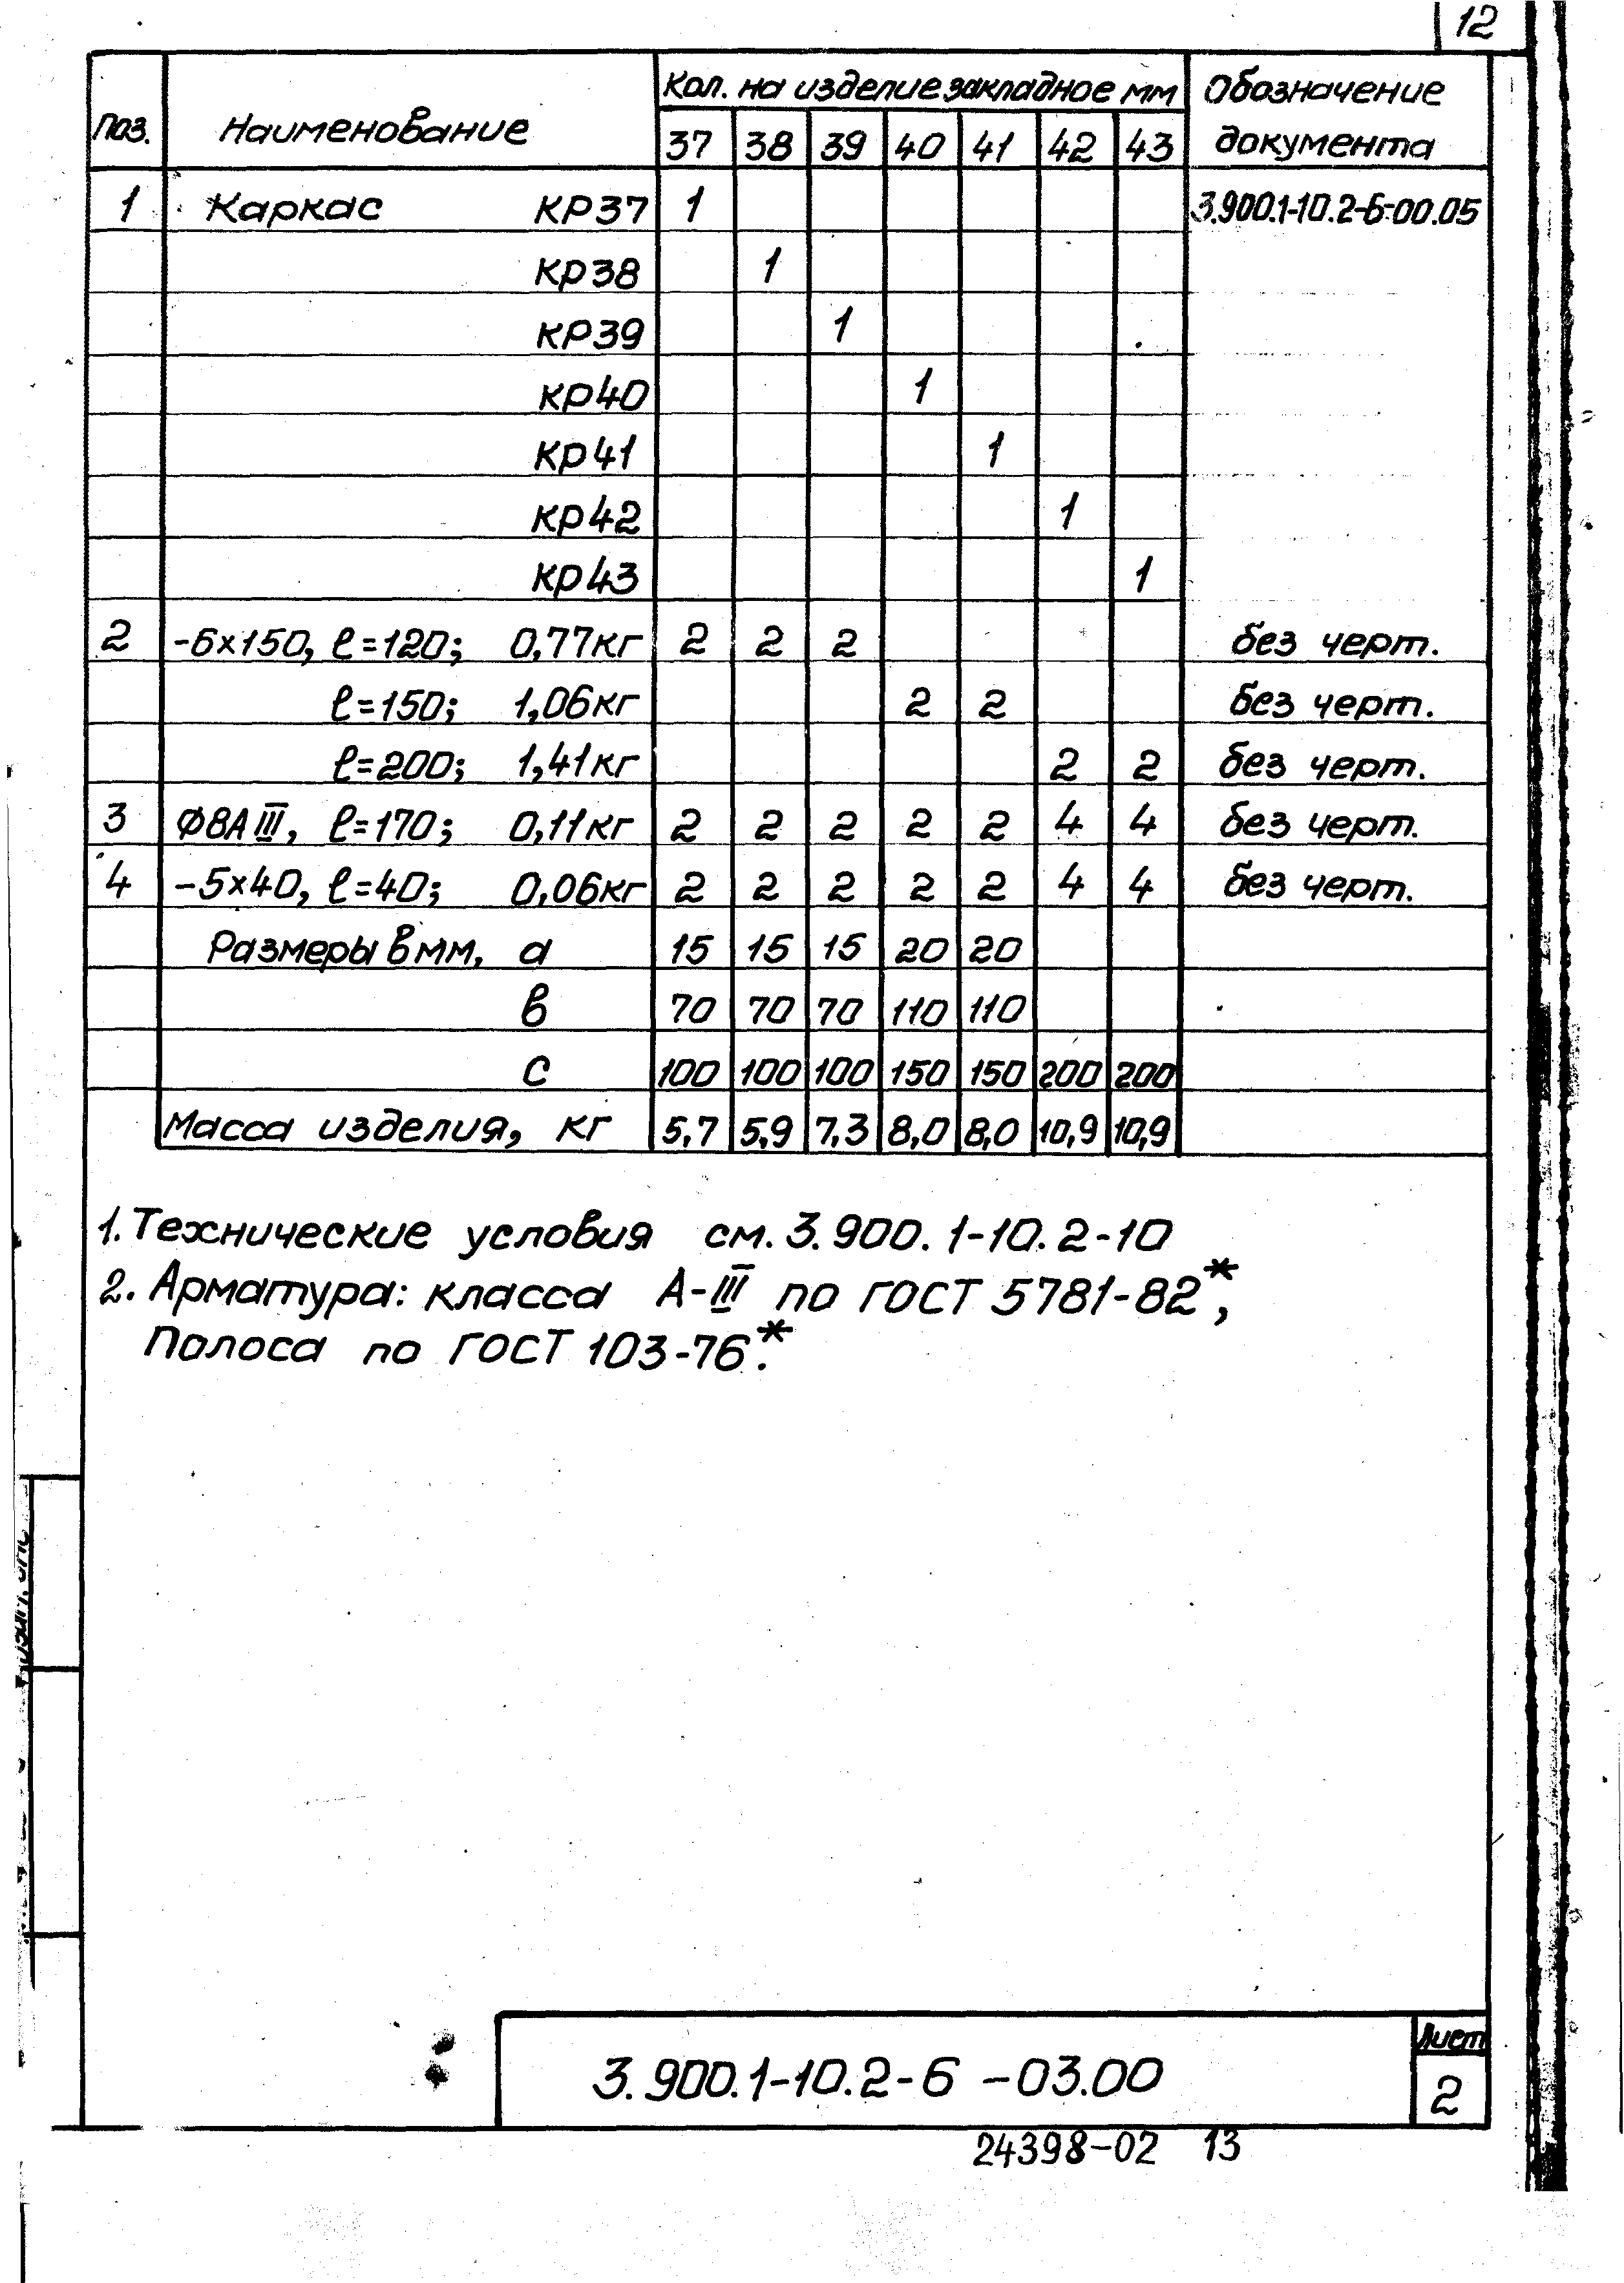 12
Поз. Наименование Кол. на изделие закладное мм Обозначение документа
37 38 39 40 41 42 43
1 Каркас КР37 1 3.900.1-10.2-6-00.05
КР38 1
КР39 1
КР40 1
КР41 1
КР42 1
КР43 1
2 -6х150, ℓ=120; 0,77кг 2 2 2 без черт.
ℓ=150; 1,06кг 2 2 без черт.
ℓ=200; 1,41кг 2 2 без черт.
3 Ø8АIII, ℓ=170; 0,11кг 2 2 2 2 2 4 4 без черт.
4 -5х40, ℓ=40; 0,06кг 2 2 2 2 2 4 4 без черт.
Размеры в мм, а 15 15 15 20 20
в 70 70 70 110 110
с 100 100 100 150 150 200 200
Масса изделия, кг 5,7 5,9 7,3 8,0 8,0 10,9 10,9
1. Технические условия см. 3.900.1-10.2-10
2. Арматура: класса А-III по ГОСТ 5781-82*,
Полоса по ГОСТ 103-76*.
3.900.1-10.2-6 -03.00
Лист
2
24398-02 13